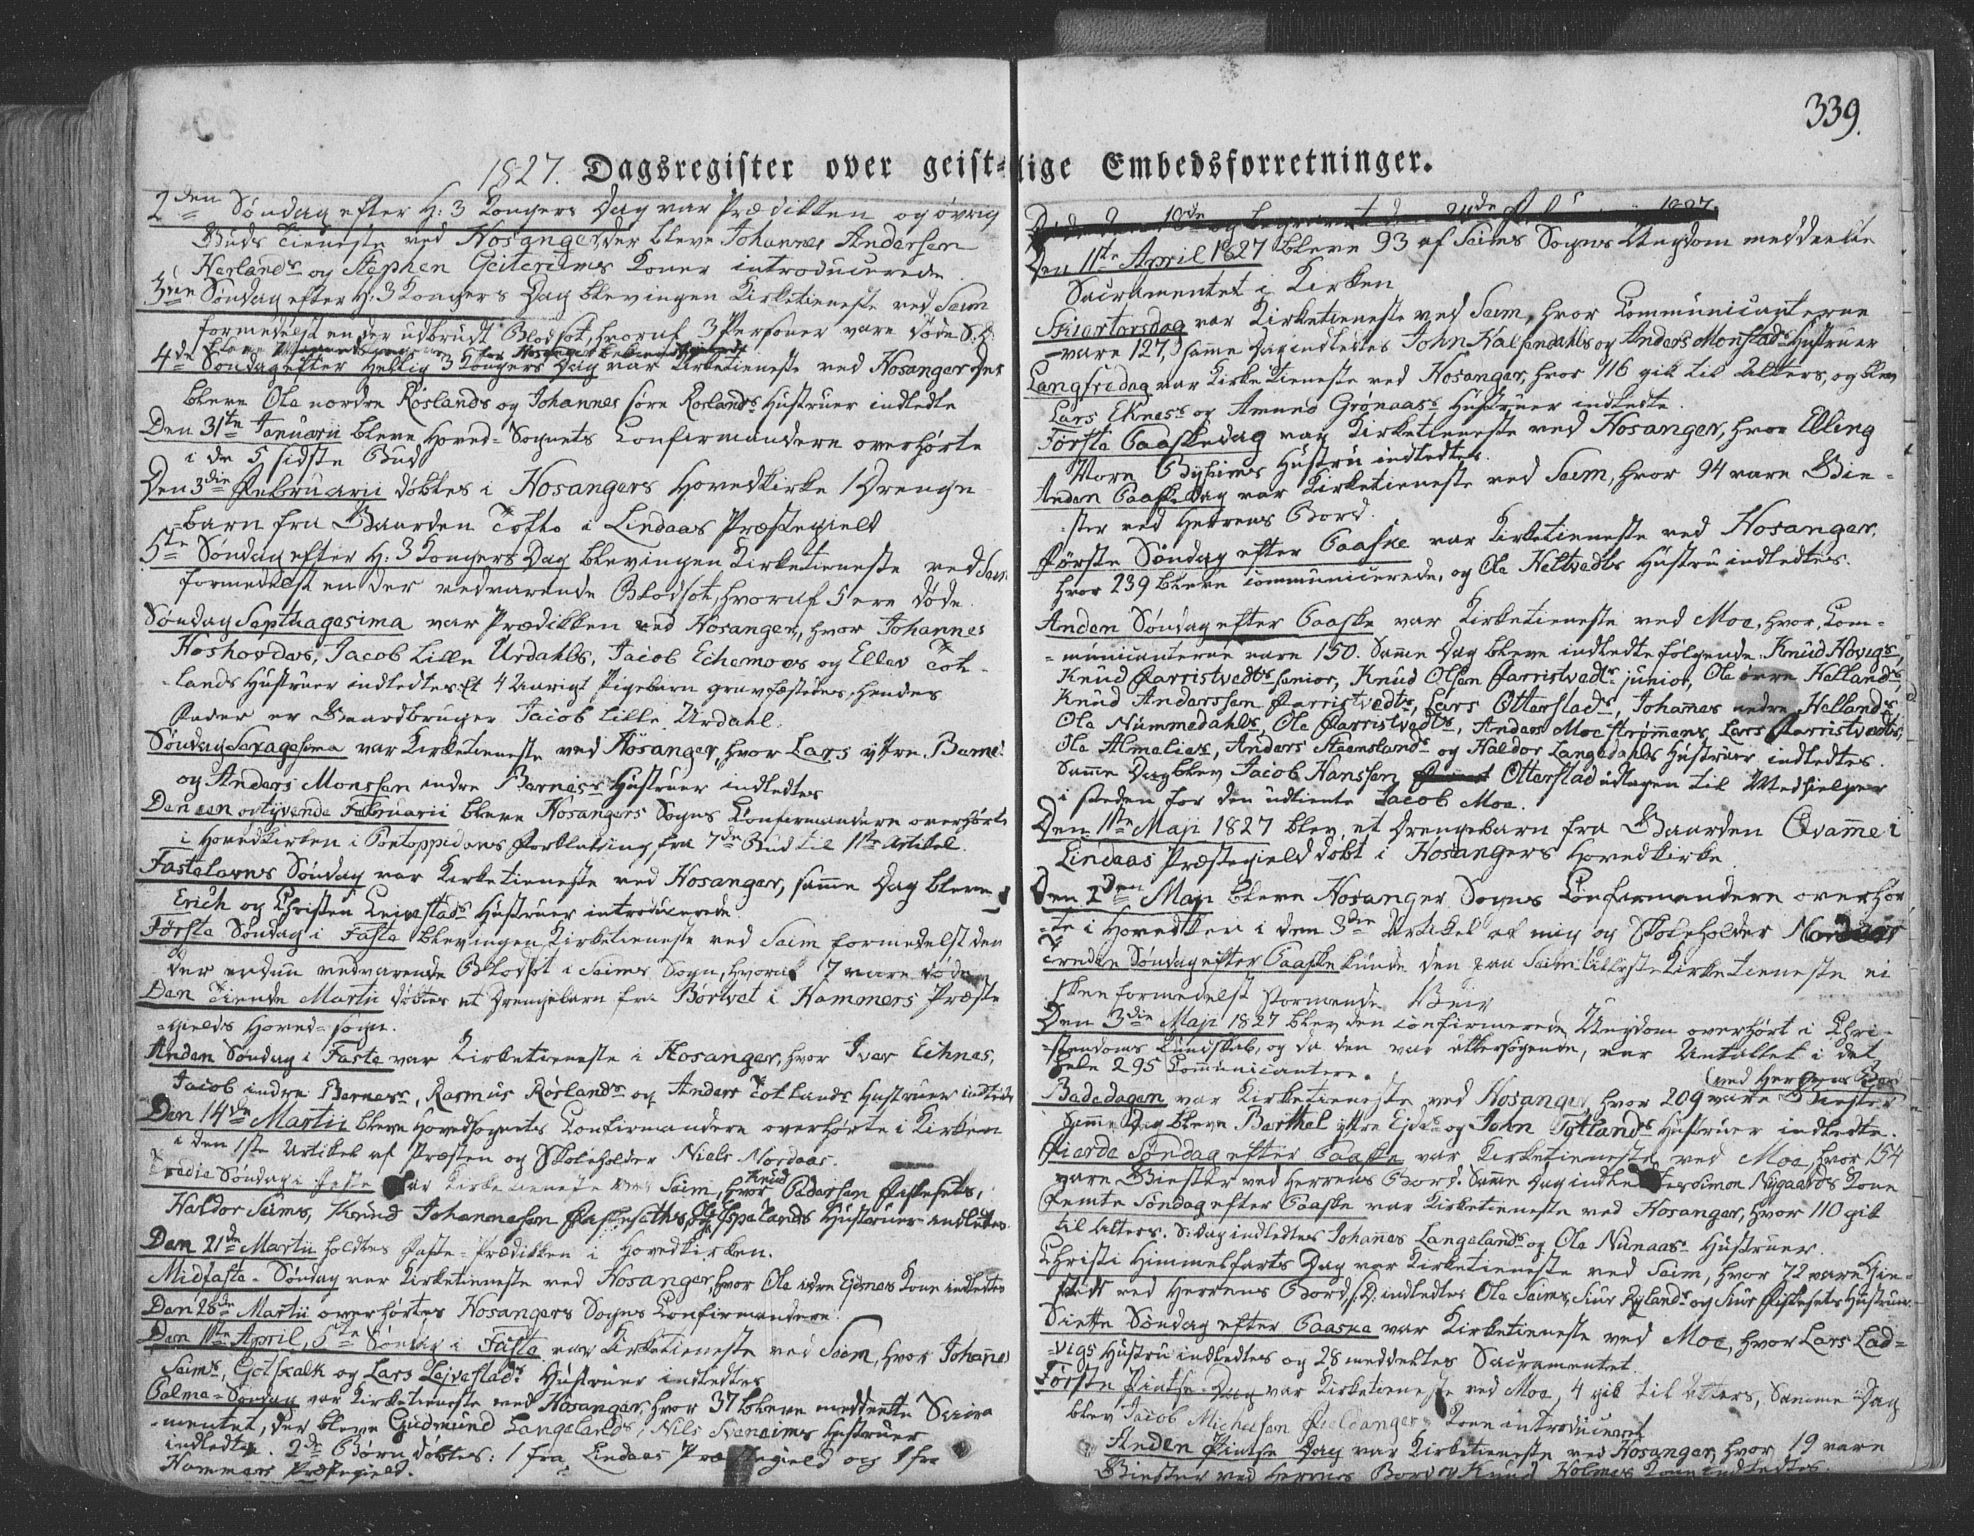 339.
1827. Dagsregister over geist-lige Embedsforretninger.
2den Søndag efter H: 3 Kongers Dag var Prædikken og øvrig
Guds Tieneste ved Hosanger, der bleve Johannes Andersen
Herlands og Stephen Geitereims Koner introducerede.
3die Søndag efter H: 3 Kongers Dag blev ingen Kirketieneste ved Seim
formedelst en der udbrudt Blodsot, hvoraf 3 Personer vare døde
4de Søndag efter Hellig 3 Kongers Dag var Kirketieneste ved Hosanger Der
bleve Ole nordre Røslands og Johannes søre Røslands Hustruer indledte
Den 31te Januarii bleve Hoved-Sognets Confirmandere overhørte
i de 5 sidste Bud
Den 3die Februarii døbtes i Hosangers Hovedkirke 1 Drenge-
barn fra Gaarden Tofte i Lindaas Præstegield
5te Søndag efter H: 3 Kongers Dag blev ingen Kirketieneste ved Seim
formedelst en der vedvarende Blodsot, hvoraf 5 ere døde.
Søndag Septuagesima var Prædikken ved Hosanger, hvor Johannes
Høshovdes, Jacob Lille Urdahls, Jacob Echemoes og Ellev Tot-
lands Hustruer indledtes. Et 4 Aarigt Pigebarn gravfæstedes, hendes
Fader er Gaardbruger Jacob Lille Urdahl.
Søndag Sexagesima var Kirketieneste ved Hosanger, hvor Lars yttre Berne's
og Anders Monssen indre Bernes's Hustruer indledtes
Den een og tyvende Februarii bleve Hosangers Sogns Confirmandere overhørte
i Hovedkirken i Pontoppidans Forklaring fra 7de Bud til 1ste Artikel.
Fastelavns Søndag var Kirketieneste ved Hosanger, samme Dag bleve
Erich og Christen Leivestads Hustruer introducerede
Første Søndag i Faste blev ingen Kirketieneste ved Seim formedelst den
der endnu vedvarende Blodsot i Seims Sogn, hvoraf 7 vare døde
Den Tiende Martii døbtes et Drengebarn fra Børtvet i Hammers Præste
-gields Hoved-sogn.
Anden Søndag i Faste var Kirketieneste i Hosanger, hvor Iver Eihnes,
Jacob indre Bernes's, Rasmus Røslands og Anders Totlands Hustruer indledte
Den 14de Martii bleve Hovedsognets Confirmandere overhørte i Kirken
i den 1ste Artikel af Præsten og Skoleholder Niels Nordaas.
Tredie Søndag i Faste var Kirketieneste ved Seim, hvor Knud Pedersen Fiskesets,
Haldor Seims, Knud Johannesen Fiskesets og Ole Espelands Hustruer indledtes
Den 21de Martii holdtes Faste-Prædikken i Hovedkirken.
Midfaste-Søndag var Kirketieneste ved Hosanger, hvor Ole indre Eidsnes Kone indledtes
Den 28de Martii overhørtes Hosangers Sogns Confirmandere.
Den 1ste April, 5te Søndag i Faste var Kirketieneste ved Seim, hvor Johannes
Seims, Gotskalk og Lars Leivestads Hustruer indledtes
Palme-Søndag var Kirketieneste ved Hosanger, hvor 37 bleve meddeelte Sacra
-mentet, der bleve Gudmund Langelands, Nils Svaneims Hustruer
indledte. 2de Børn døbtes: 1 fra Lindaas Præstegield og 1 fra
Hammers Præstegield.
Den 11te April 1827 bleve 93 af Seims Sogns Ungdom meddeelte
Sacramentet i Kirken
Skiertorsdag var Kirketieneste ved Seim, hvor Communicanterne
vare 127, samme Dag indledtes John Kalsendahls og Anders Monstads Hustruer
Langfredag var Kirketieneste ved Hosanger, hvor 116 gik til Alters, og blev
Lars Eknes's og Amund Grønaas's Hustruer indledte.
Første Paaskedag var Kirketieneste ved Hosanger, hvor Elling
Norn Byheims Hustru indledtes.
Anden Paaske Dag var Kirketieneste ved Seim, hvor 94 vare Giæ-
ster ved Herrens Bord.
Første Søndag efter Paaske var Kirketieneste ved Hosanger,
hvor 239 bleve communicerede, og Ole Heltvedts Hustru indledtes.
Anden Søndag efter Paaske var Kirketieneste ved Moe, hvor Com-
municanterne vare 150. Samme Dag bleve indledte følgende: Knud Høvigs,
Knud Farristvedts senior, Knud Olsen Farristvedts junior, Ole øvre Hellands,
Knud Anderssen Farristvedts, Lars Otterstads, Johannes nedre Hellands,
Ole Nummedahls, Ole Farristvedts, Anders Moe strømmens, Lars Farristvedts,
Ole Almelies, Anders Steenslands og Haldor Langedahls Hustruer indledtes.
Samme Dag blev Jacob Hanssen Otterstad udtagen til Medhielper
i steden for den udtiente Jacob Moe.
Den 1ste Maji 1827 blev et Drengebarn fra Gaarden Qvamme i
Lindaas Præstegield døbt i Hosangers Hovedkirke
Den 2den Maji bleve Hosanger Sogns Confirmandere overhør
-te i Hovedkken i den 3die Artikel af mig og Skoleholder Nordaas
Tredie Søndag efter Paaske kunde den paa Seim tillyste Kirketieneste ei
skee formedelst stormende Veir
Den 3die Maji 1827 blev den confirmerede Ungdom overhørt i Chri-
stendoms Kundskab, og da den var altersøgende, var Antallet i det
hele 295 Communicantere.
Bededagen var Kirketieneste ved Hosanger, hvor 209 vare Giester (ved Herrens Bord
Samme Dag bleve Berthel yttre Eides og John Tytlands Hustruer indledte.
Fierde Søndag efter Paaske var Kirketieneste ved Moe, hvor 154
vare Giester ved Herrens Bord. Samme Dag indledtes Simon Nygaards Kone
Femte Søndag efter Paaske var Kirketieneste ved Hosanger, hvor 110 gik
til Alters. S: Dag indledtes Johannes Langelands og Ole Nunaas's Hustruer.
Christi Himmelfarts Dag var Kirketieneste ved Seim, hvor 72 vare Gie-
ster ved Herrens Bord, S: D: indledtes Ole Seims, Siur Rylands og Siur Fiskesets Hustruer.
Siette Søndag efter Paaske var Kirketieneste ved Moe, hvor Lars Lad-
vigs Hustru indledtes og 28 meddeeltes Sacramentet.
Første Pintse-Dag var Kirketieneste ved Moe, 4 gik til Alters, Samme Dag
blev Jacob Michelsen Fieldangers Kone introduceret
Anden Pintse Dag var Kirketieneste ved Hosanger, hvor 19 vare
Giester ved Herrens Bord og Knud Holmes Kone indledtes.